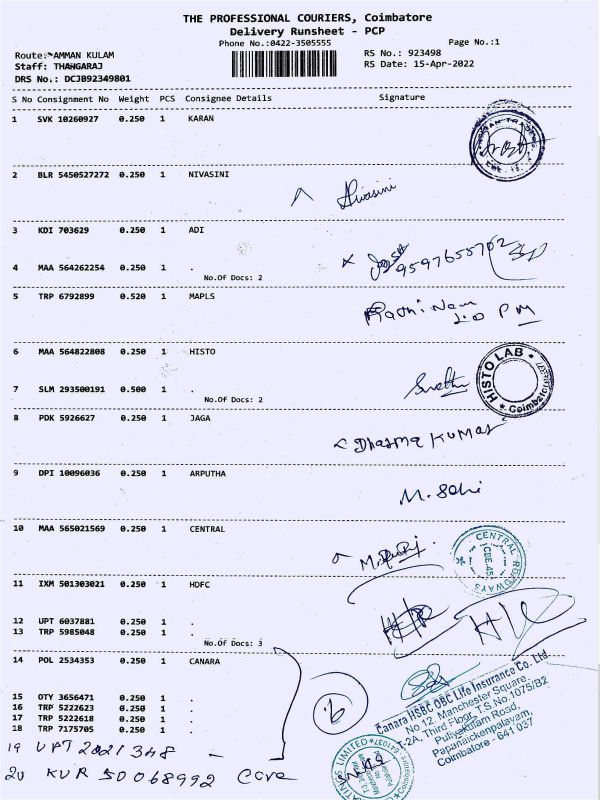 THE PROFESSIONAL COURIERS, Coimbatore
Delivery Runsheet - PCP
Phone No.:0422-3505555 Page No.:1
Route: AMMAN KULAM RS No.: 923498
Staff: THANGARAJ RS Date: 15-Apr-2022
DRS No.: DCJB92349801
S No Consignment No Weight PCS Consignee Details Signature
1 SVK 10260927 0.250 1 KARAN
2 BLR 5450527272 0.250 1 NIVASINI
Nivasini
3 KDI 703629 0.250 1 ADI
9597655702
4 MAA 564262254 0.250 1 .
No.Of Docs: 2
5 TRP 6792899 0.520 1 MAPLS
PM
6 MAA 564822808 0.250 1 HISTO
HISTO LAB
Coimbatore
7 SLM 293500191 0.500 1 .
No.Of Docs: 2
8 PDK 5926627 0.250 1 JAGA
Dharma Kumar
9 DPI 10096036 0.250 1 ARPUTHA
10 MAA 565021569 0.250 1 CENTRAL
CENTRAL ROADWAYS
11 IXM 501303021 0.250 1 HDFC
12 UPT 6037881 0.250 1 .
13 TRP 5985048 0.250 1 .
No.Of Docs: 3
14 POL 2534353 0.250 1 CANARA
15 OTY 3656471 0.250 1 .
16 TRP 5222623 0.250 1 .
17 TRP 5222618 0.250 1 .
18 TRP 7175705 0.250 1 .
Canara HSBC OBC Life Insurance Co. Ltd.
No 12, Manchester Square,
T-2A, Third Floor, T.S.No.1075/B2
Puliyakulam Road,
Papanaickenpalayam,
Coimbatore - 641 037
19 UPT 2021348
20 KUR 50068992